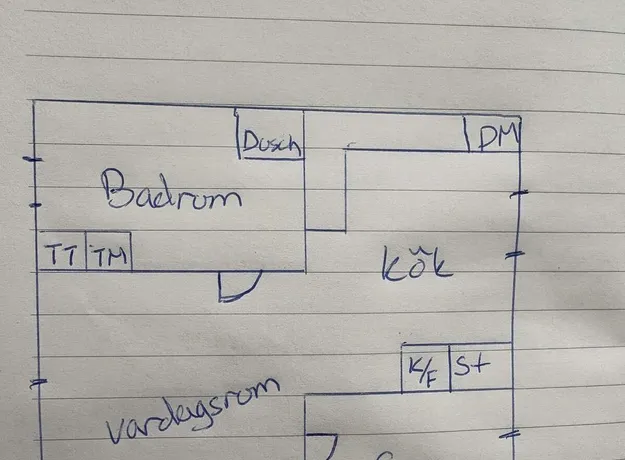 Dusch
DM
Badrom
TT TM
kök
K/F St
vardagsrom